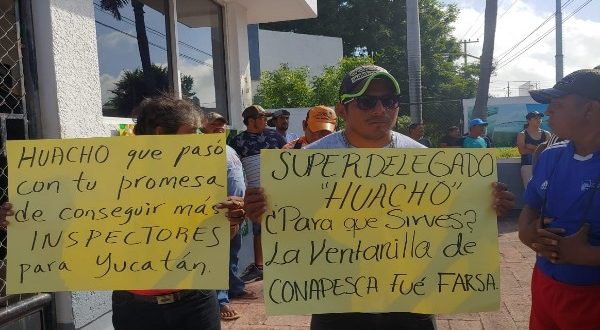 HUACHO que pasó
con tu promesa
de conseguir más
INSPECTORES
para Yucatán.
SUPERDELEGADO
"HUACHO"
¿Para que Sirves?
La Ventanilla de
CONAPESCA Fué FARSA.